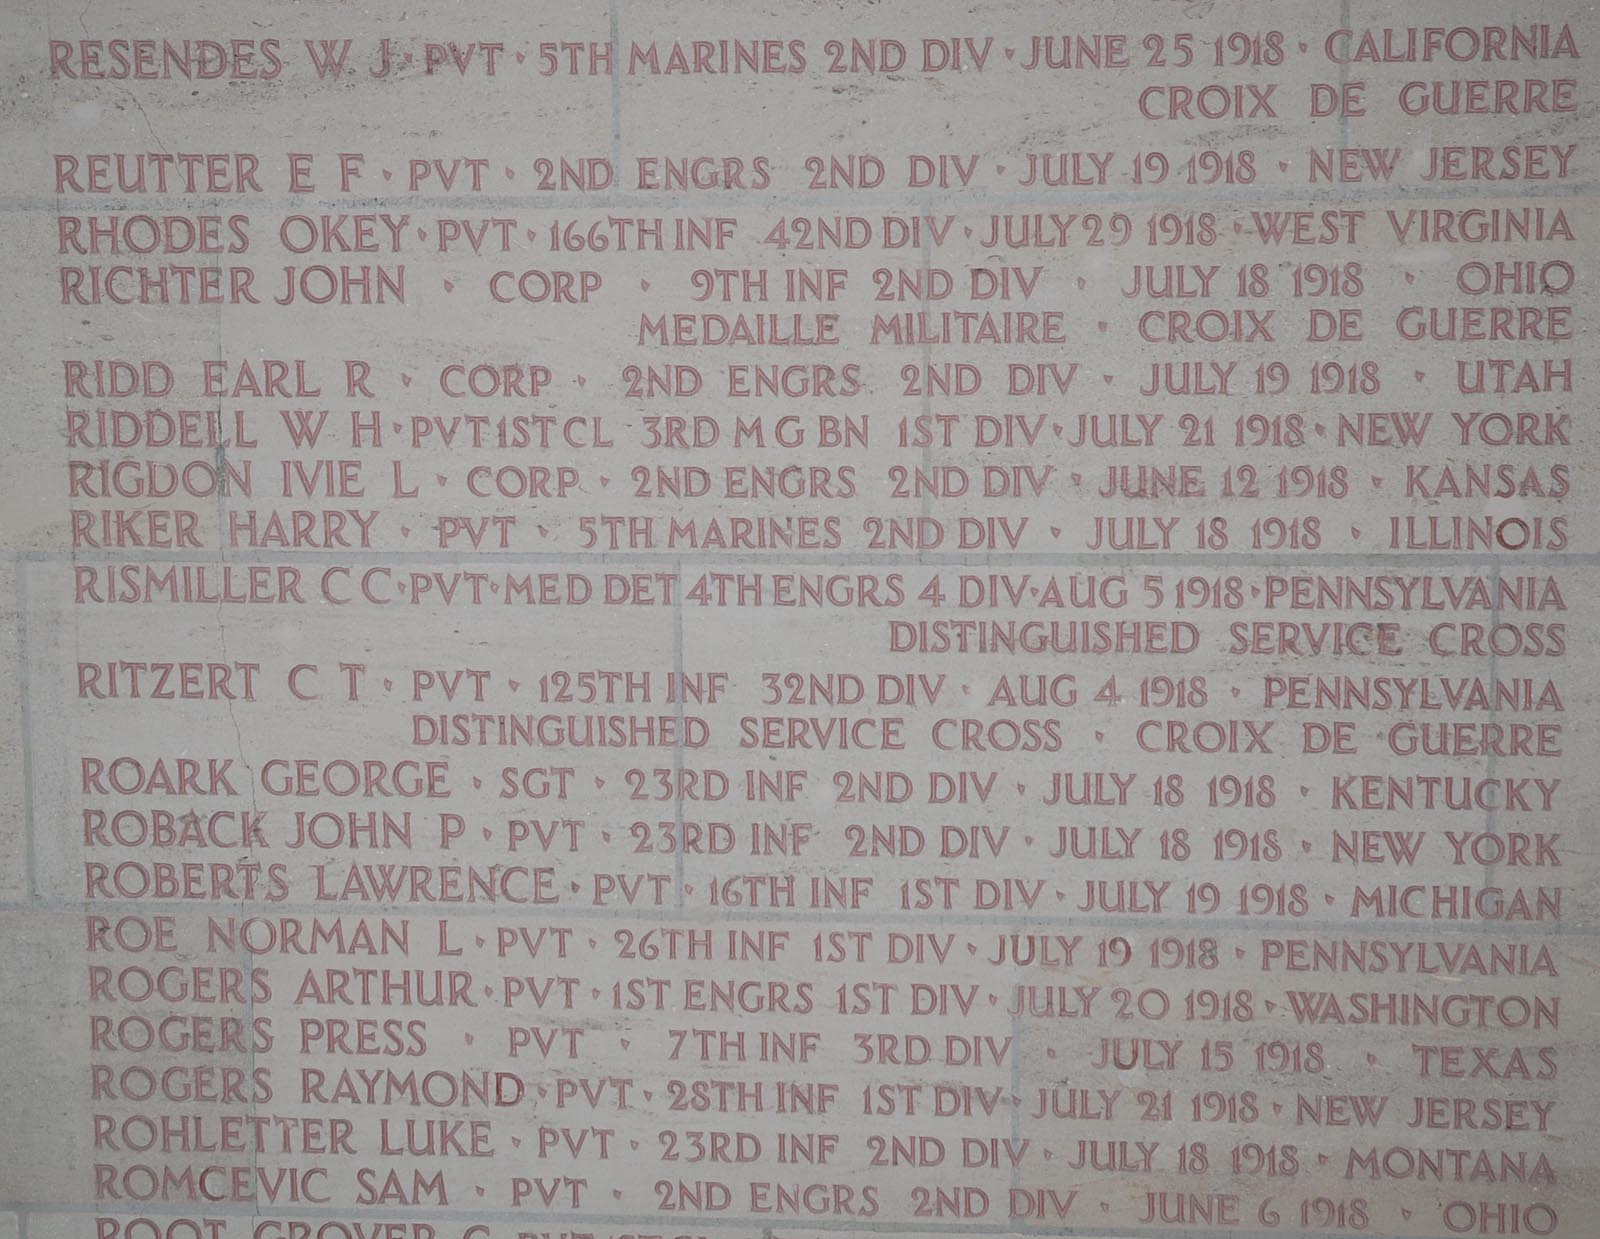 RESENDES W J · PVT · 5TH MARINES 2ND DIV · JUNE 25 1918 · CALIFORNIA
CROIX DE GUERRE
REUTTER E F · PVT · 2ND ENGRS 2ND DIV · JULY 19 1918 · NEW JERSEY
RHODES OKEY · PVT · 166TH INF 42ND DIV · JULY 29 1918 · WEST VIRGINIA
RICHTER JOHN · CORP · 9TH INF 2ND DIV · JULY 18 1918 · OHIO
MEDAILLE MILITAIRE · CROIX DE GUERRE
RIDD EARL R · CORP · 2ND ENGRS 2ND DIV · JULY 19 1918 · UTAH
RIDDELL W H · PVT 1ST CL 3RD M G BN 1ST DIV · JULY 21 1918 · NEW YORK
RIGDON IVIE L · CORP · 2ND ENGRS 2ND DIV · JUNE 12 1918 · KANSAS
RIKER HARRY · PVT · 5TH MARINES 2ND DIV · JULY 18 1918 · ILLINOIS
RISMILLER C C · PVT · MED DET 4TH ENGRS 4 DIV · AUG 5 1918 · PENNSYLVANIA
DISTINGUISHED SERVICE CROSS
RITZERT C T · PVT · 125TH INF 32ND DIV · AUG 4 1918 · PENNSYLVANIA
DISTINGUISHED SERVICE CROSS · CROIX DE GUERRE
ROARK GEORGE · SGT · 23RD INF 2ND DIV · JULY 18 1918 · KENTUCKY
ROBACK JOHN P · PVT · 23RD INF 2ND DIV · JULY 18 1918 · NEW YORK
ROBERTS LAWRENCE · PVT · 16TH INF 1ST DIV · JULY 19 1918 · MICHIGAN
ROE NORMAN L · PVT · 26TH INF 1ST DIV · JULY 19 1918 · PENNSYLVANIA
ROGERS ARTHUR · PVT · 1ST ENGRS 1ST DIV · JULY 20 1918 · WASHINGTON
ROGERS PRESS · PVT · 7TH INF 3RD DIV · JULY 15 1918 · TEXAS
ROGERS RAYMOND · PVT · 28TH INF 1ST DIV · JULY 21 1918 · NEW JERSEY
ROHLETTER LUKE · PVT · 23RD INF 2ND DIV · JULY 18 1918 · MONTANA
ROMCEVIC SAM · PVT · 2ND ENGRS 2ND DIV · JUNE 6 1918 · OHIO
ROOT GROVER C